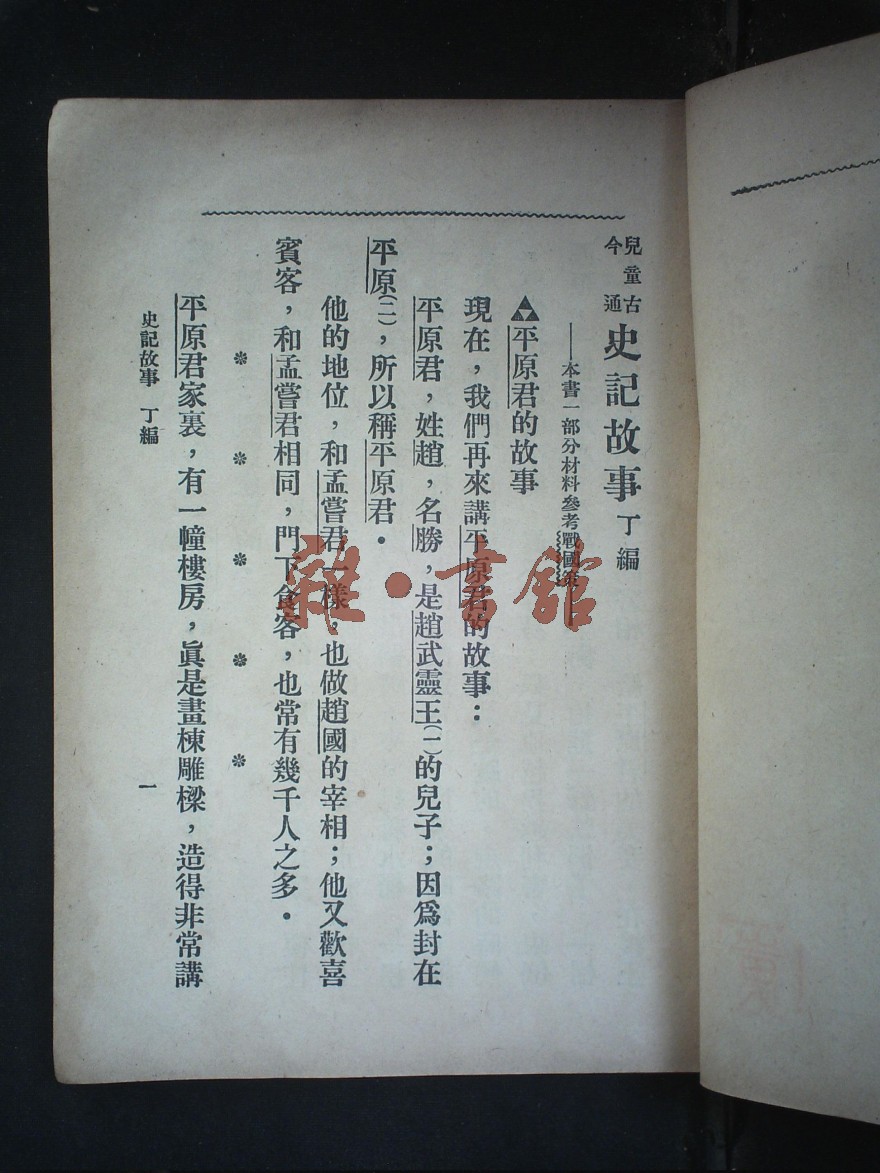 兒童古今通 史記故事 丁編
——本書一部分材料參考戰國策——
平原君的故事
現在，我們再來講平原君的故事：
平原君，姓趙，名勝，是趙武靈王(一)的兒子；因爲封在
平原(二)，所以稱平原君．
他的地位，和孟嘗君一樣，也做趙國的宰相；他又歡喜
賓客，和孟嘗君相同，門下食客，也常有幾千人之多．
＊＊＊＊＊
平原君家裏，有一幢樓房，眞是畫棟雕樑，造得非常講
史記故事 丁編 一
雜·書館